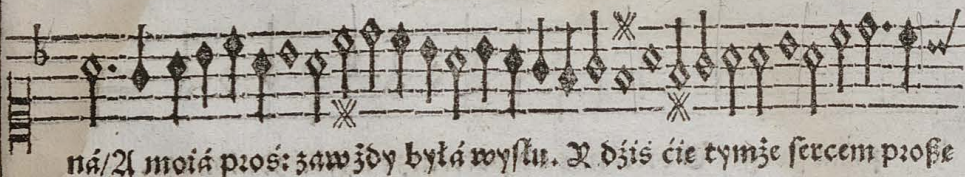 ná/A moiá proś: zawżdy byłá wysłu. Y dźiś ćie tymże sercem proßę